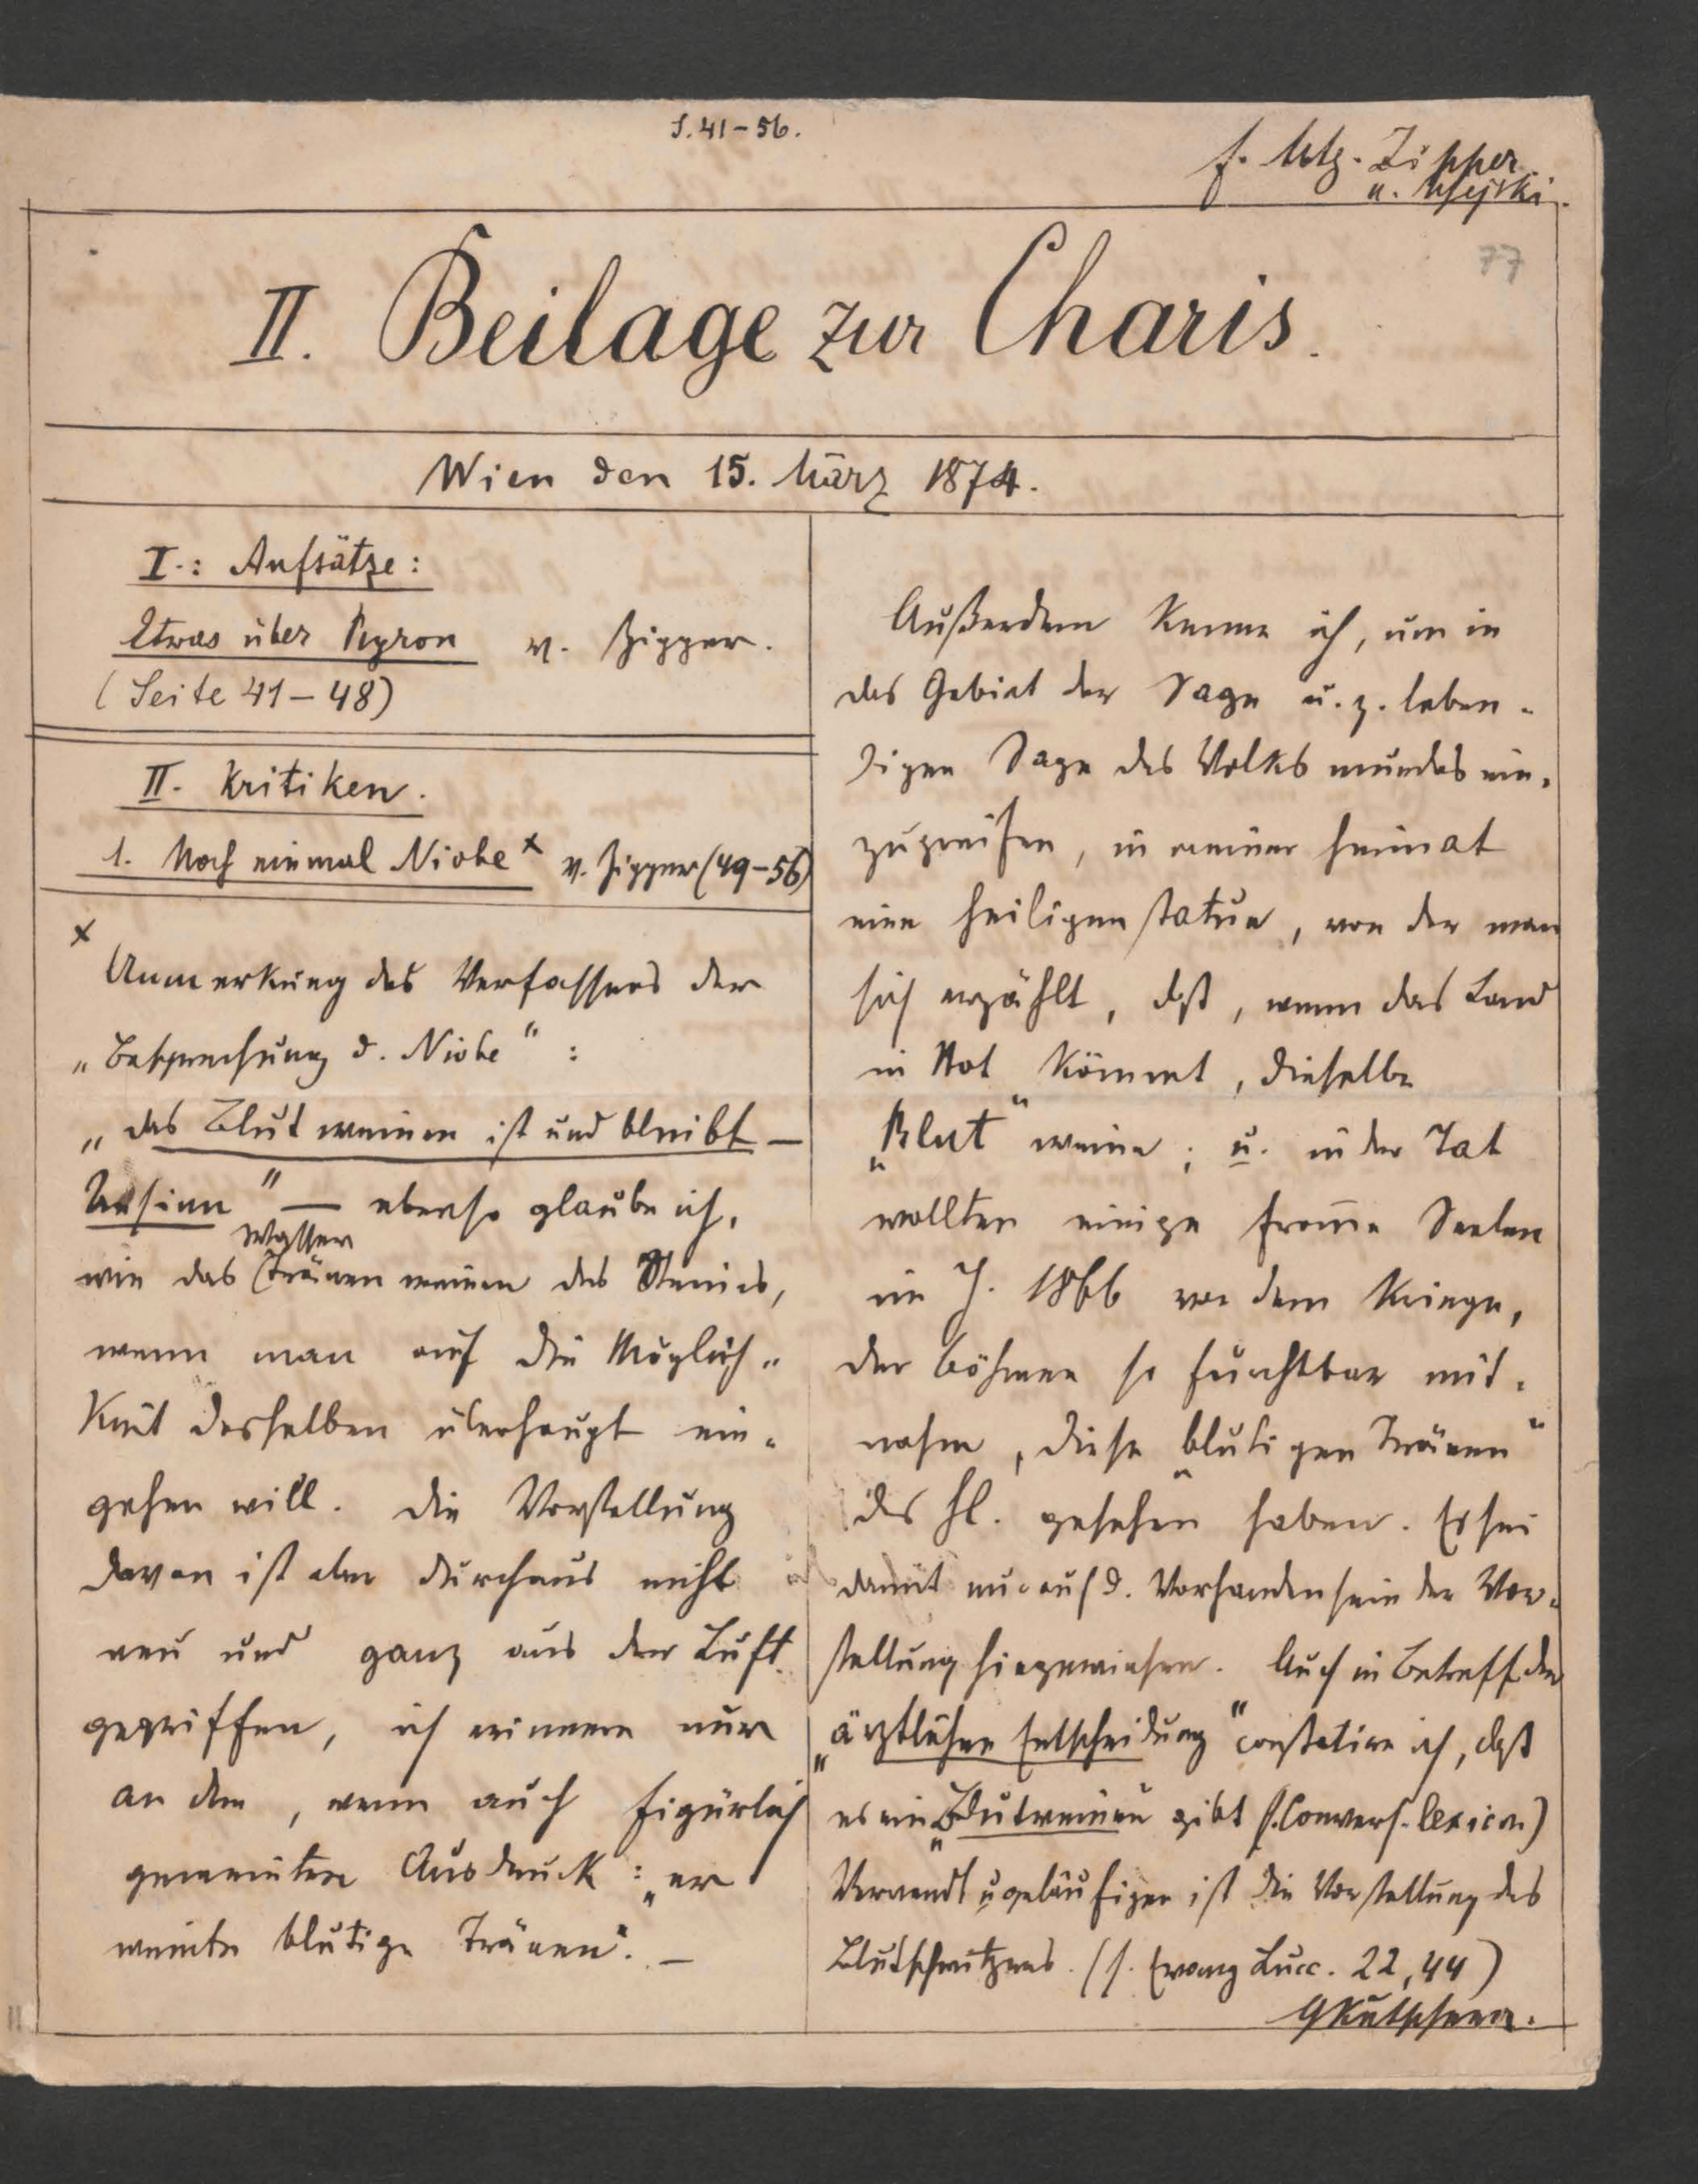 S. 41-56.
f. Mtg. Zipper
u. Ujejski.
77
II. Beilage zur Charis.
Wien den 15. März 1874.
I.: Aufsätze:
Etwas über Byron v. Zipper.
(Seite 41-48)
II. Kritiken.
1. Noch einmal Niobe x v. Zipper (49-56)
x
Anmerkung des Verfassers der
„Besprechung d. Niobe“:
„das Blutweinen ist und bleibt —
Unsinn“ — ebenso glaube ich,
Wasser
wie das (Tränen weinen des Steines,
wenn man auf die Möglich-
keit desselben überhaupt ein-
gehen will. Die Vorstellung
davon ist aber durchaus nicht
neu und ganz aus der Luft
gegriffen, ich erinnere nur
an den, wenn auch figürlich
gemeinten Ausdruck: „er
weinte blutige Tränen“. —
Außerdem kenne ich, um in
das Gebiet der Sage u. z. leben-
digen Sage des Volksmundes ein-
zugreifen, in meiner Heimat
eine Heiligenstatue, von der man
sich erzählt, daß, wenn das Land
in Not kömmt, dieselbe
„Blut“ weine; u. in der Tat
wollten einige from̄e Seelen
im J. 1866 vor dem Kriege,
der Böhmen so furchtbar mit-
nahm, diese „blutigen Tränen“
des Hl. gesehen haben. Es sei
damit nur auf d. Vorhandensein der Vor-
stellung hingewiesen. Auch in Betreff der
„ärztlichen Entscheidung“ constatire ich, daß
es ein „Blutweinen gibt (s. Convers. lexicon)
Verwandt u. geläufiger ist die Vorstellung des
Blutschwitzens. (s. Evang Lucc. 22,44)
GKutschera.